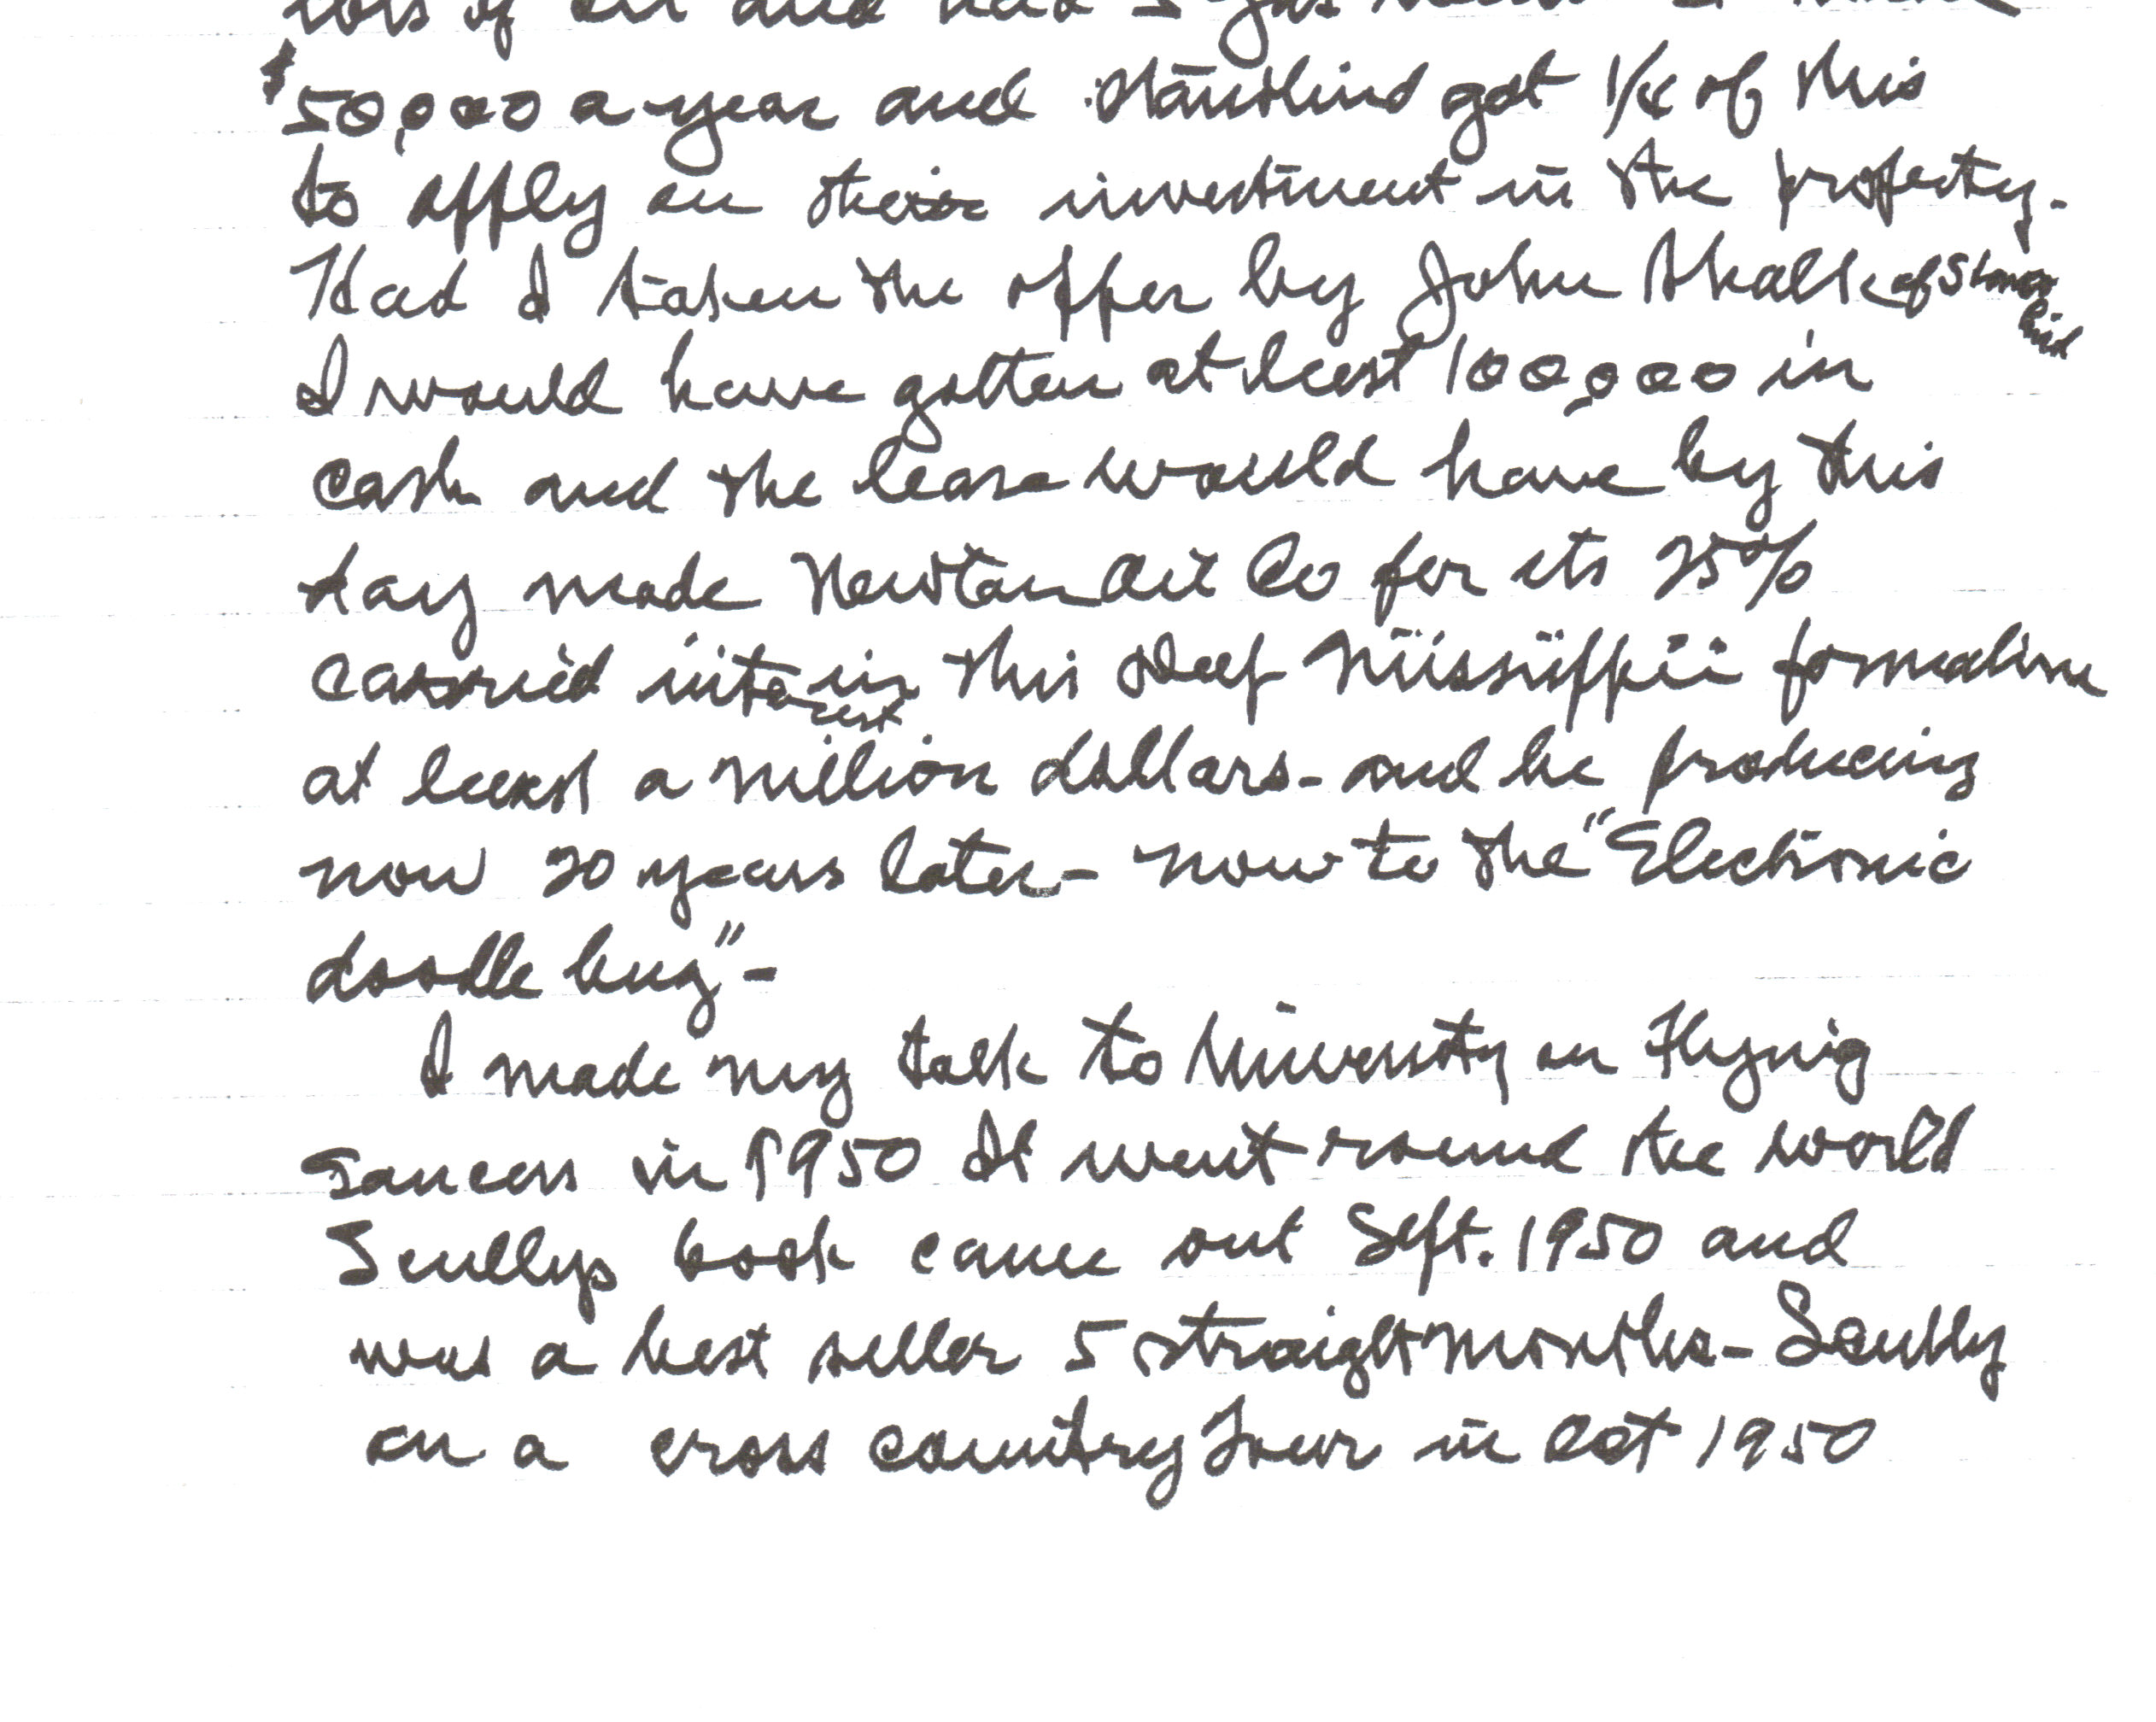 lots of oil and had 5 gas
$50,000 a year and got 1/4 of this
to apply on their investment in the property.
Had I taken the offer by John of
I would have gotten at least 100,000 in
cash and the lease would have by this
day made Newton Oil Co for its 25%
carried interest in this deep Mississippii formation
at least a million dollars - and be producing
now 20 years later - now to the "Electronic
doodle bug" -
I made my talk to University on Flying
Saucers in 1950 It went round the world
Scullys book came out Sept. 1950 and
was a best seller 5 straight months - Scully
on a cross country tour in Oct 1950